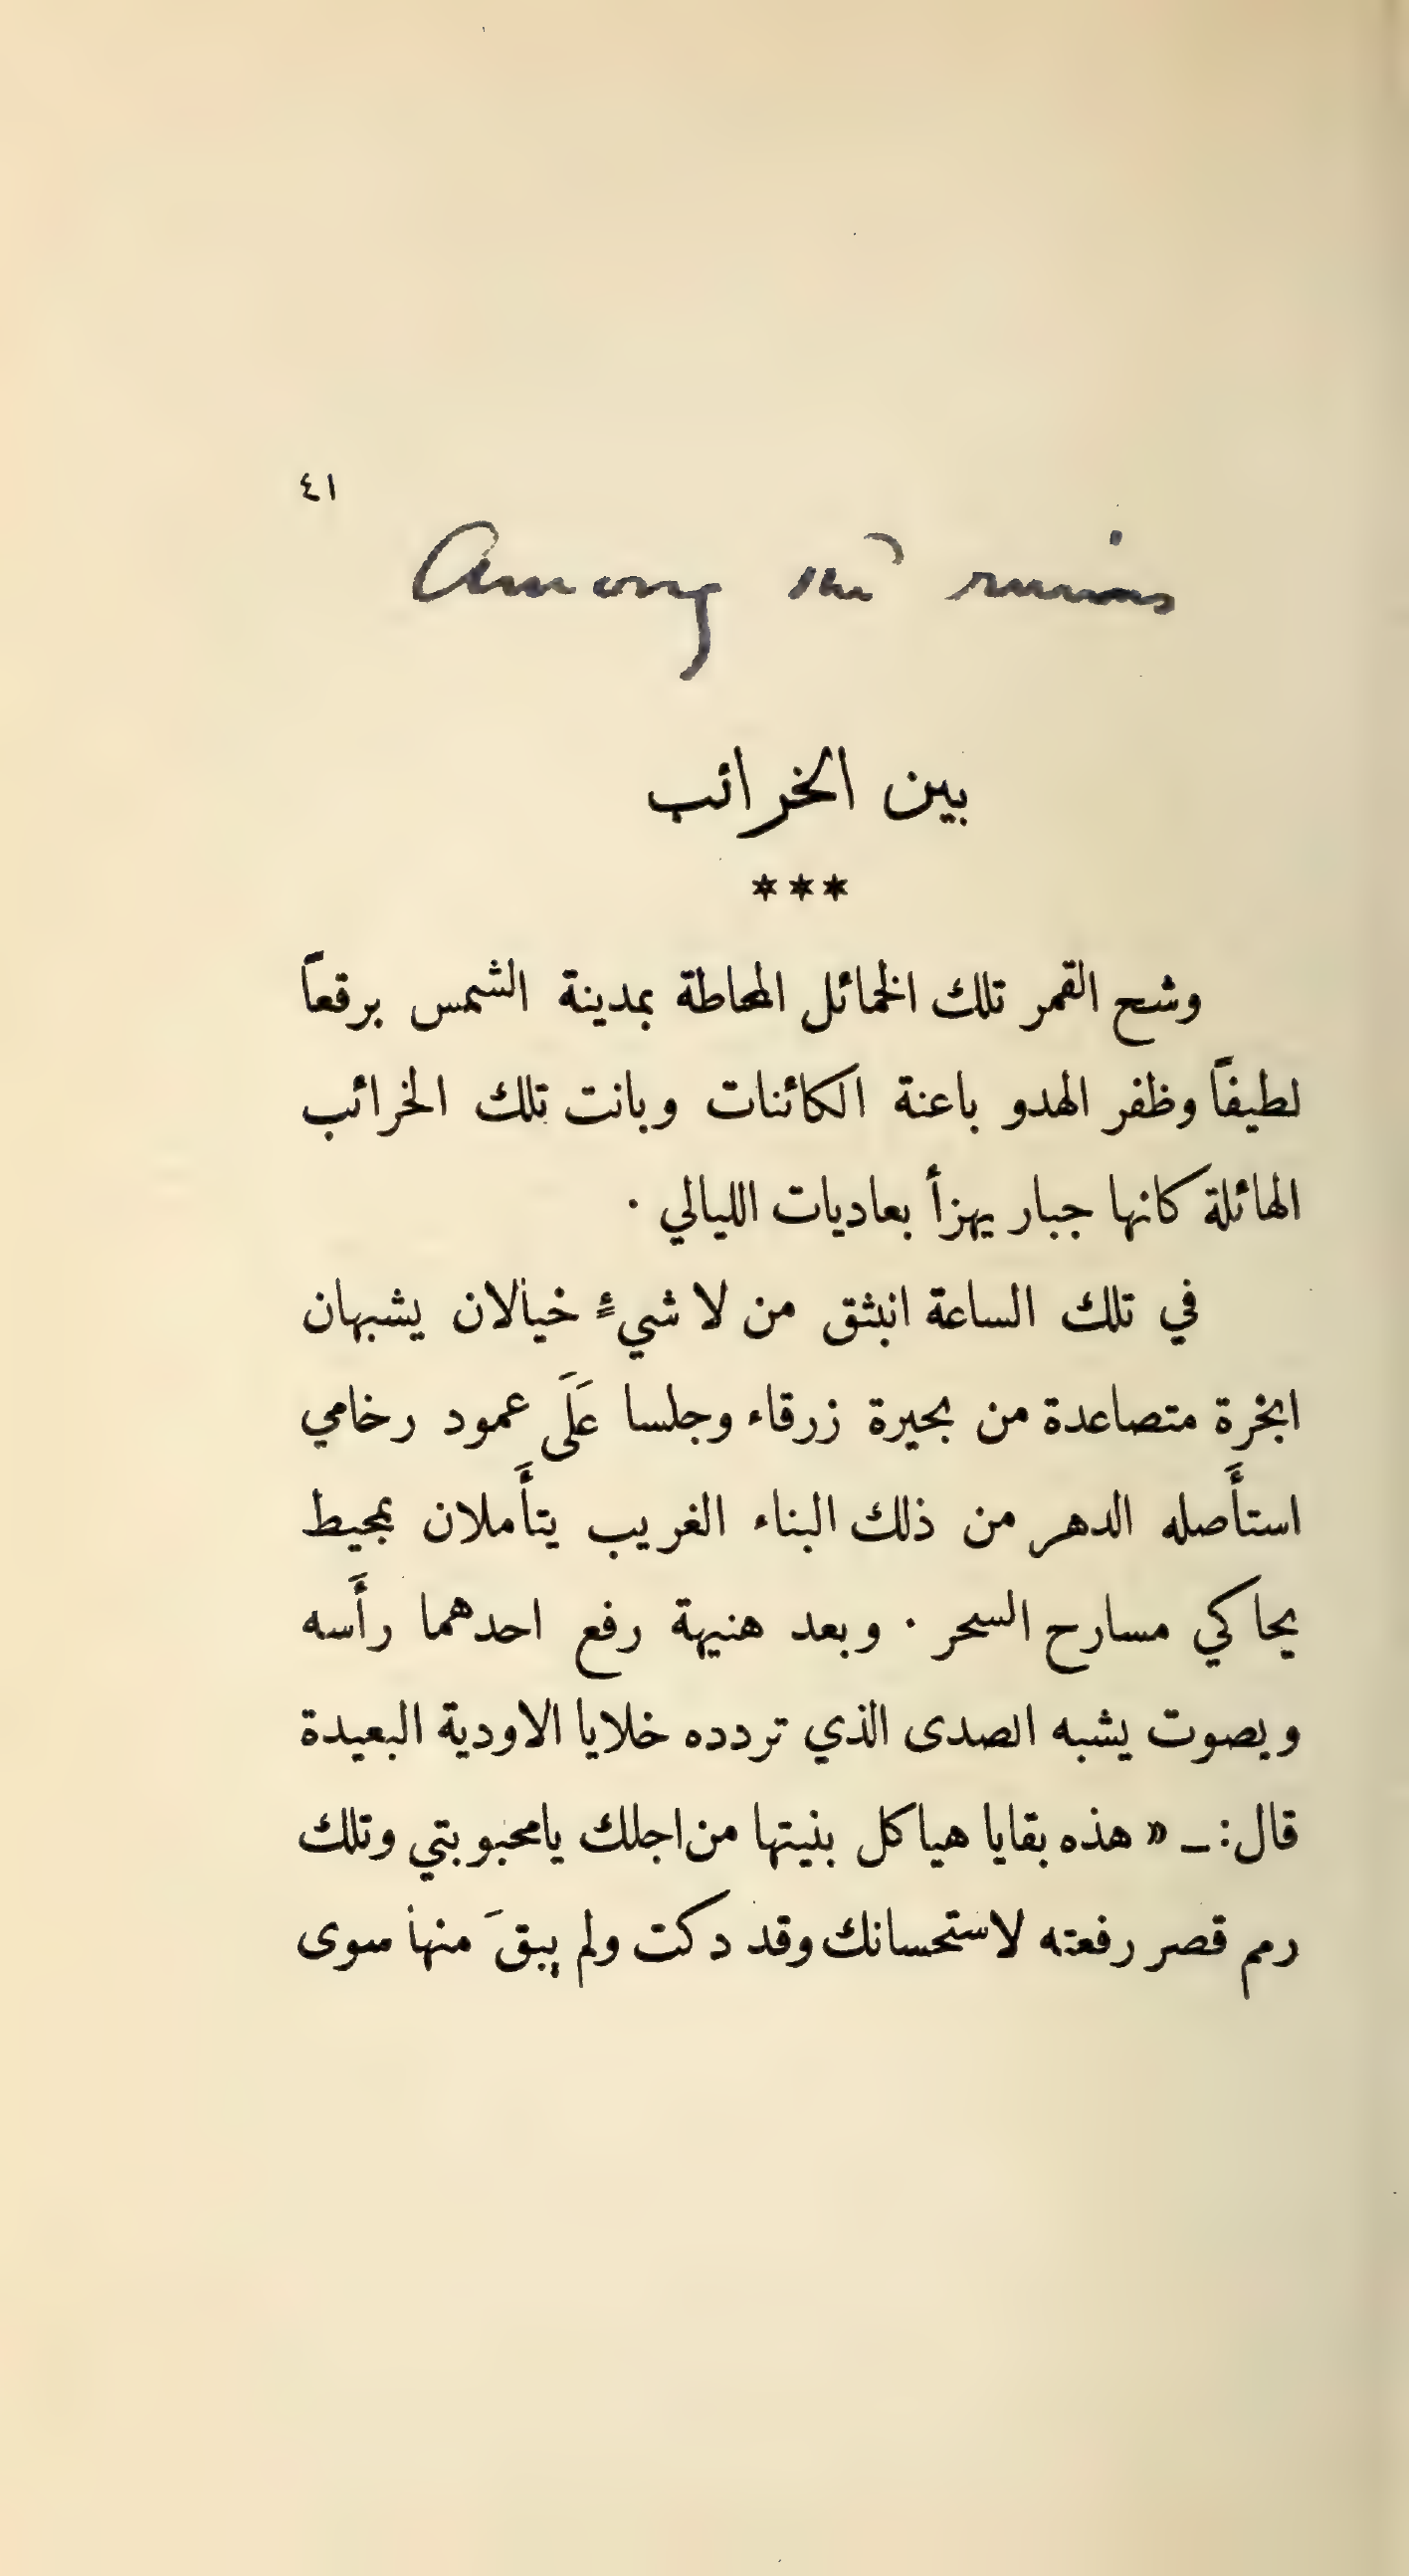 ٤١
Among the ruins
بين الخرائب
***
وشح القمر تلك الخمائل المحاطة بمدينة الشمس برقعاً
لطيفاً وظفر الهدو باعنة الكائنات وبانت تلك الخرائب
الهائلة كانها جبار يهزأ بعاديات الليالي ٠
في تلك الساعة انبثق من لا شيءٍ خيالان يشبهان
ابخرة متصاعدة من بحيرة زرقاء وجلسا عَلَى عمود رخامي
استأَصله الدهر من ذلك البناء الغريب يتأَملان بمحيط
يحاكي مسارح السحر ٠ وبعد هنيهة رفع احدهما رأَسه
وبصوت يشبه الصدى الذي تردده خلايا الاودية البعيدة
قال: ـ « هذه بقايا هياكل بنيتها من اجلك يا محبوبتي وتلك
رمم قصر رفعته لاستحسانك وقد دكت ولم يبقَ منها سوى